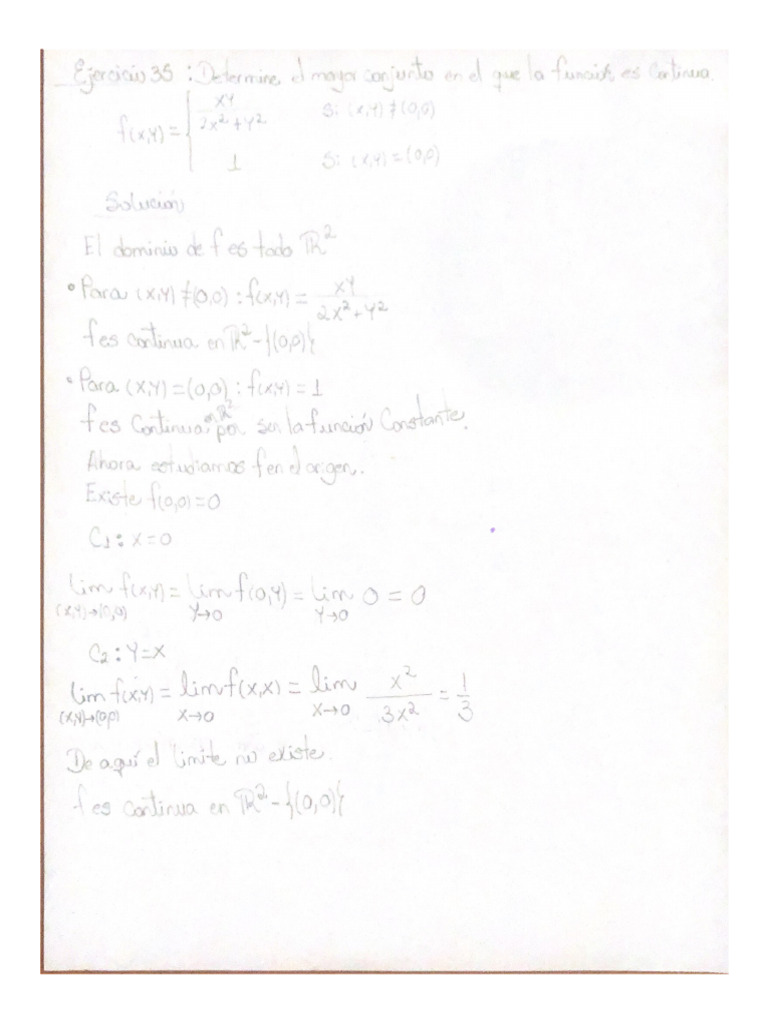 Ejercicio 35 : Determine el mayor conjunto en el que la función es Continua.
f(x,y) = { xy / 2x² + y² Si (x,y) ≠ (0,0)
1 Si (x,y) = (0,0)
Solución
El dominio de f es todo ℝ²
• Para (x,y) ≠ (0,0) : f(x,y) = xy / 2x² + y²
f es continua en ℝ² - {(0,0)}
• Para (x,y) = (0,0) : f(x,y) = 1
f es Continua, en ℝ² por ser la función Constante.
Ahora estudiamos f en el origen.
Existe f(0,0) = 0
C₁ : x = 0
lim (x,y)→(0,0) f(x,y) = lim y→0 f(0,y) = lim y→0 0 = 0
C₂ : y = x
lim (x,y)→(0,0) f(x,y) = lim x→0 f(x,x) = lim x→0 x² / 3x² = 1/3
De aquí el limite no existe.
f es continua en ℝ² - {(0,0)}